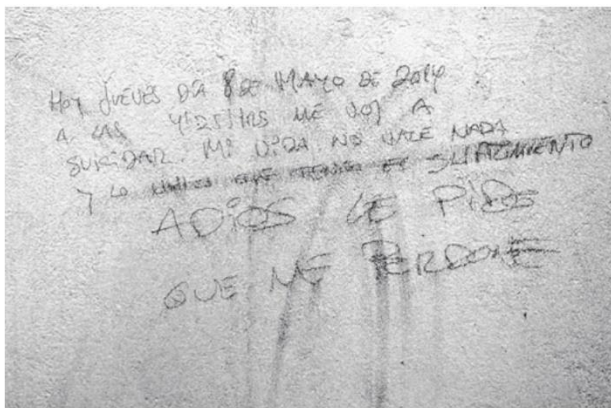 HOY JUEVES DIA 8 DE MAYO DE 2014
A LAS 4:25 HRS ME VOY A
SUICIDAR. MI VIDA NO VALE NADA
Y LO UNICO QUE TENGO ES SUFRIMIENTO
ADIOS LE PIDO
QUE ME PERDONE